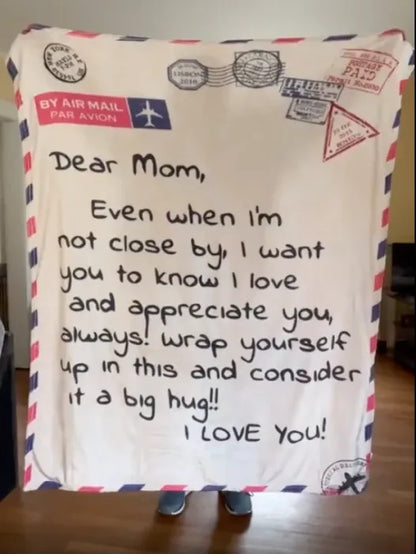 NEW YORK
LISBON
2016
POSTAGE
PAID
BY AIR MAIL
PAR AVION
Dear Mom,
Even when I'm
not close by, I want
you to know I love
and appreciate you,
always! Wrap yourself
up in this and consider
it a big hug!!
I LOVE YOU!